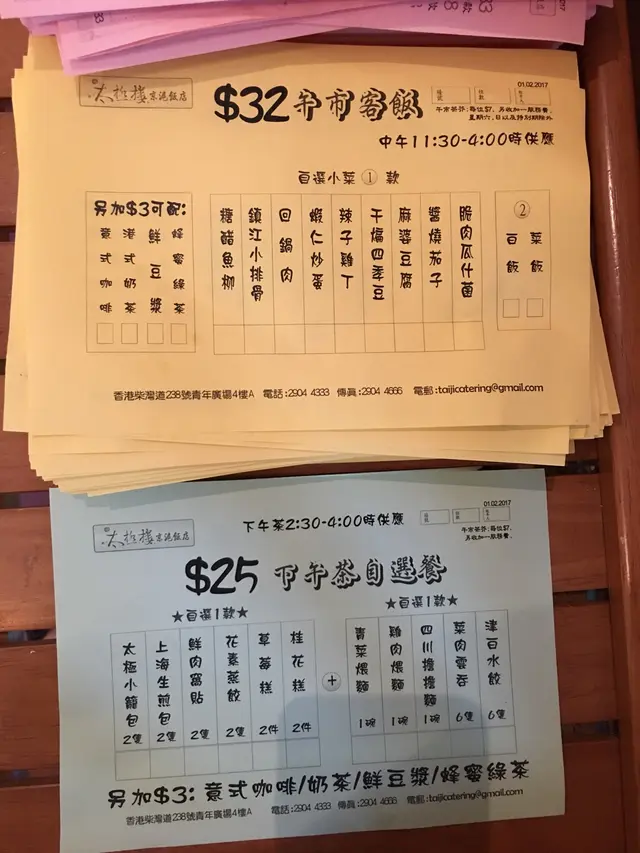 太極樓京滬飯店
$32午市客飯
01.02.2017
午市茶芥:每位$7,另收加一服務費,
星期六,日以及特別期除外
中午11:30-4:00時供應
自選小菜①款
另加$3可配:
意式咖啡
港式奶茶
鮮豆漿
蜂蜜綠茶
糖醋魚柳
鎮江小排骨
回鍋肉
蝦仁炒蛋
辣子雞丁
干煸四季豆
麻婆豆腐
醬燒茄子
脆肉瓜什菌
②
白飯
菜飯
香港柴灣道238號青年廣場4樓A 電話:2904 4333 傳真:2904 4666 電郵:taijicatering@gmail.com
太極樓京滬飯店
下午茶2:30-4:00時供應
01.02.2017
午市茶芥:每位$7,
另收加一服務費.
$25下午茶自選餐
★自選1款★
太極小籠包2隻
上海生煎包2隻
鮮肉窩貼2隻
花素蒸餃2隻
草莓糕2件
桂花糕2件
+
★自選1款★
青菜煨麵1碗
雞肉煨麵1碗
四川擔擔麵1碗
菜肉雲吞6隻
津白水餃6隻
另加$3:意式咖啡/奶茶/鮮豆漿/蜂蜜綠茶
香港柴灣道238號青年廣場4樓A 電話:2904 4333 傳真:2904 4666 電郵:taijicatering@gmail.com